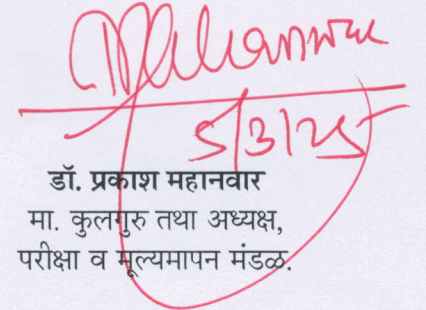 5/3/25
डॉ. प्रकाश महानवार
मा. कुलगुरु तथा अध्यक्ष,
परीक्षा व मूल्यमापन मंडळ.